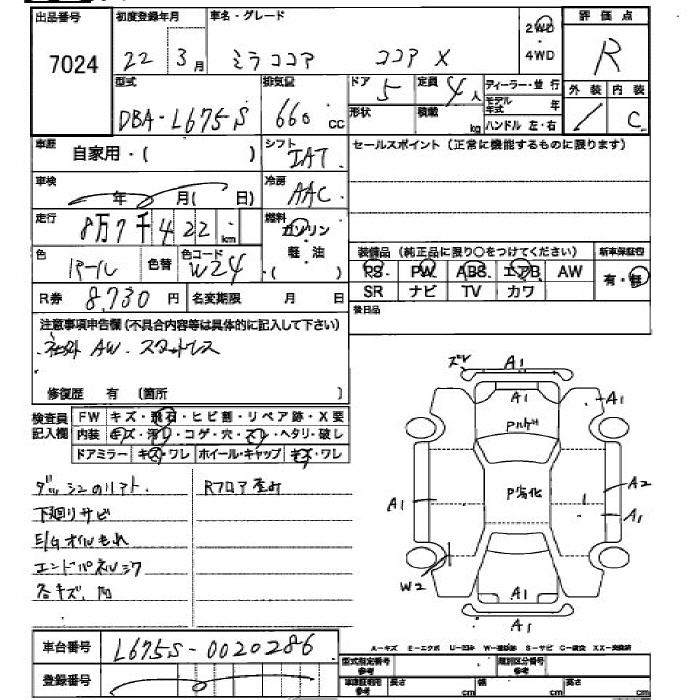 出品番号 7024
初度登録年月 22年 3月
車名・グレード ミラココア ココア X
2WD 4WD
評価点 R
外装 / 内装 C
型式 DBA-L675S
排気量 660 cc
ドア 5
定員 4人
形状
積載 kg
ディーラー・並行
モデル年式 年
ハンドル 左・右
車歴 自家用・( )
シフト IAT
冷房 AAC
セールスポイント (正常に機能するものに限ります)
車検 年 月( 日)
走行 8万7千422 km
燃料 ガソリン 軽・油 ・( )
色 パール 色替 色コード W24
R券 8,730円 名変期限 月 日
装備品 (純正品に限り○をつけてください) 新車保証書
PS PW ABS エアB AW 有・無
SR ナビ TV カワ
後日品
注意事項申告欄 (不具合内容等は具体的に記入して下さい)
社外 AW. スタットレス
修復歴 有 〔箇所 〕
検査員記入欄
FW キズ・飛石・ヒビ割・リペア跡・X要
内装 キズ・汚れ・コゲ・穴・スレ・ヘタリ・破し
ドアミラー キズ・ワレ ホイール・キャップ キズ・ワレ
ダッシュのリアト.
Rフロア歪み
下廻りサビ
E/Gオイルもれ
エンドパネルシワ
各キズ. 凹
ズレ A1
A1 A1
Pハゲ
P劣化
A1 A2
A1
W2 A1
A1
車台番号 L675S-0020286
登録番号
A-キズ E-エクボ U-凹み W-補修跡 S-サビ C-腐食 XX-交換済
型式指定番号 参考
類別区分番号 参考
車庫証明用 参考 長さ cm 幅 cm 高さ cm